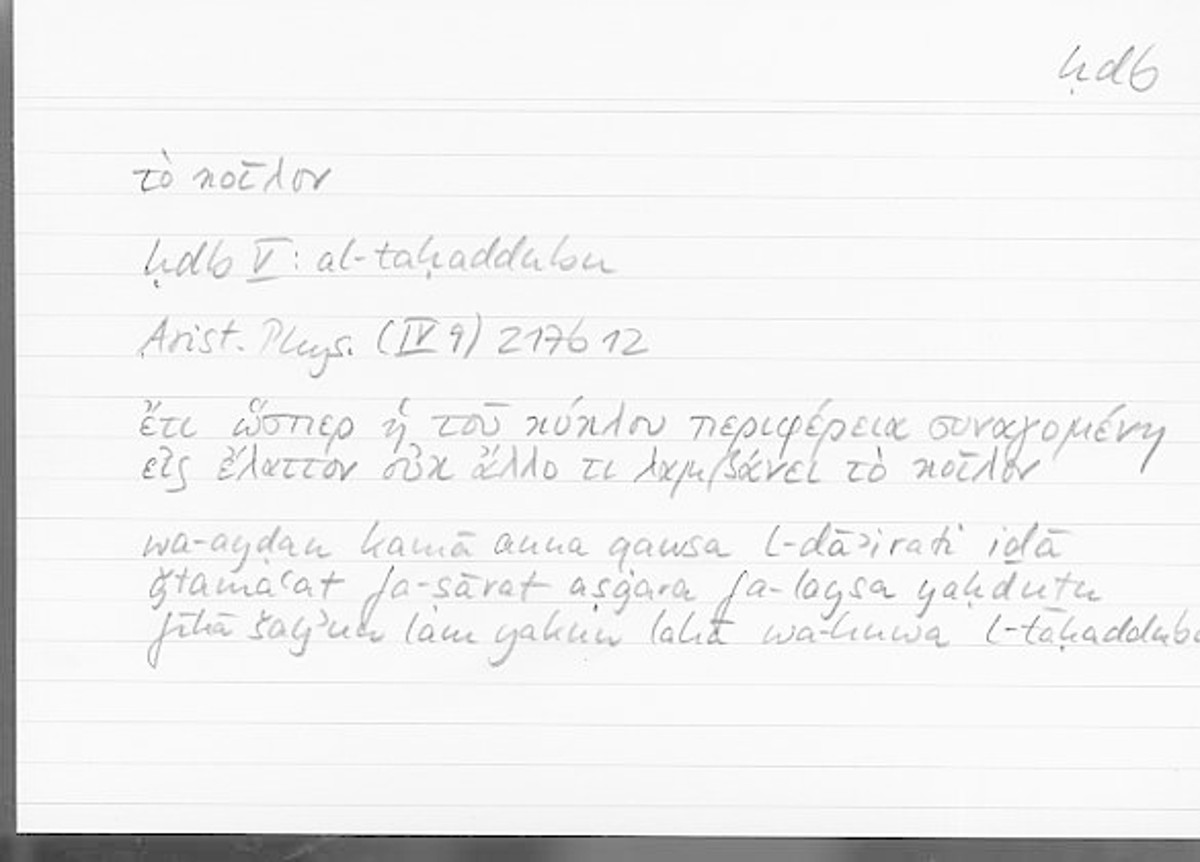 ḥdb
τὸ κοῖλον
ḥdb V: al-taḥaddubu
Arist. Phys. (IV 9) 217b 12
ἔτι ὥσπερ ἡ τοῦ κύκλου περιφέρεια συναγομένη
εἰς ἔλαττον οὐκ ἄλλο τι λαμβάνει τὸ κοῖλον
wa-ayḍan kamā anna qawsa l-dāʾirati iḏā
ǧtamaʿat fa-ṣārat aṣġara fa-laysa yaḥduṯu
fīhā šayʾun lam yakun lahā wa-huwa l-taḥaddubu